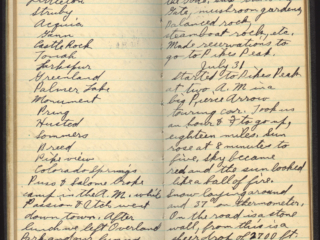 Littleton
Struby
Acquia
Gann
Castle Rock
Tomah
Larkspur
Greenland
Palmer Lake
Monument
Pring
Husted
Sommers
Breed
Pikes view
Colorado Springs
Puss & Salome Kops
staid in the M. while
Passion & Utch went
down town. After
lunch we left Overland
gate, mushroom gardens,
balanced rock,
steamboat rock, etc.
Made reservations to
go to Pikes Peak.
July 31
Started to Pikes Peak
at two, A. M. in a
big Pierce Arrow
touring car. Took us
an hour & ¾ to go up,
eighteen miles. Sun
rose at 8 minutes to
five, sky became
red and the sun looked
like a ball of fire.
Snow laying around
and 37° on thermometer.
On the road is a stone
wall, from this is a
sheer drop of 2700 ft.